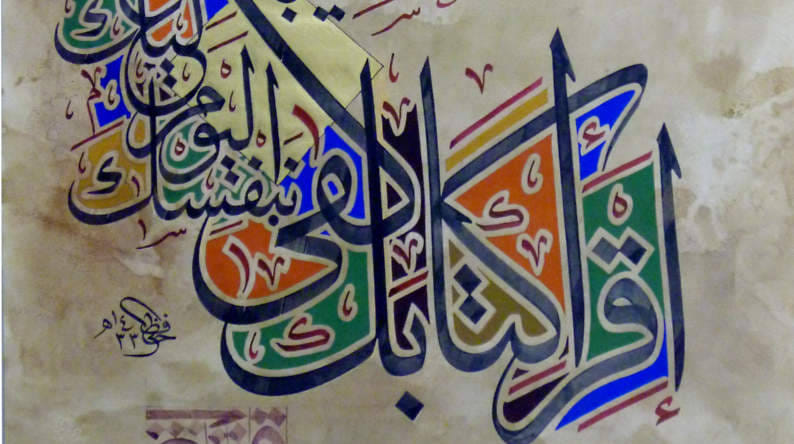 اقرأ كتابك كفى
بنفسك اليوم عليك
١٤٣٣هـ